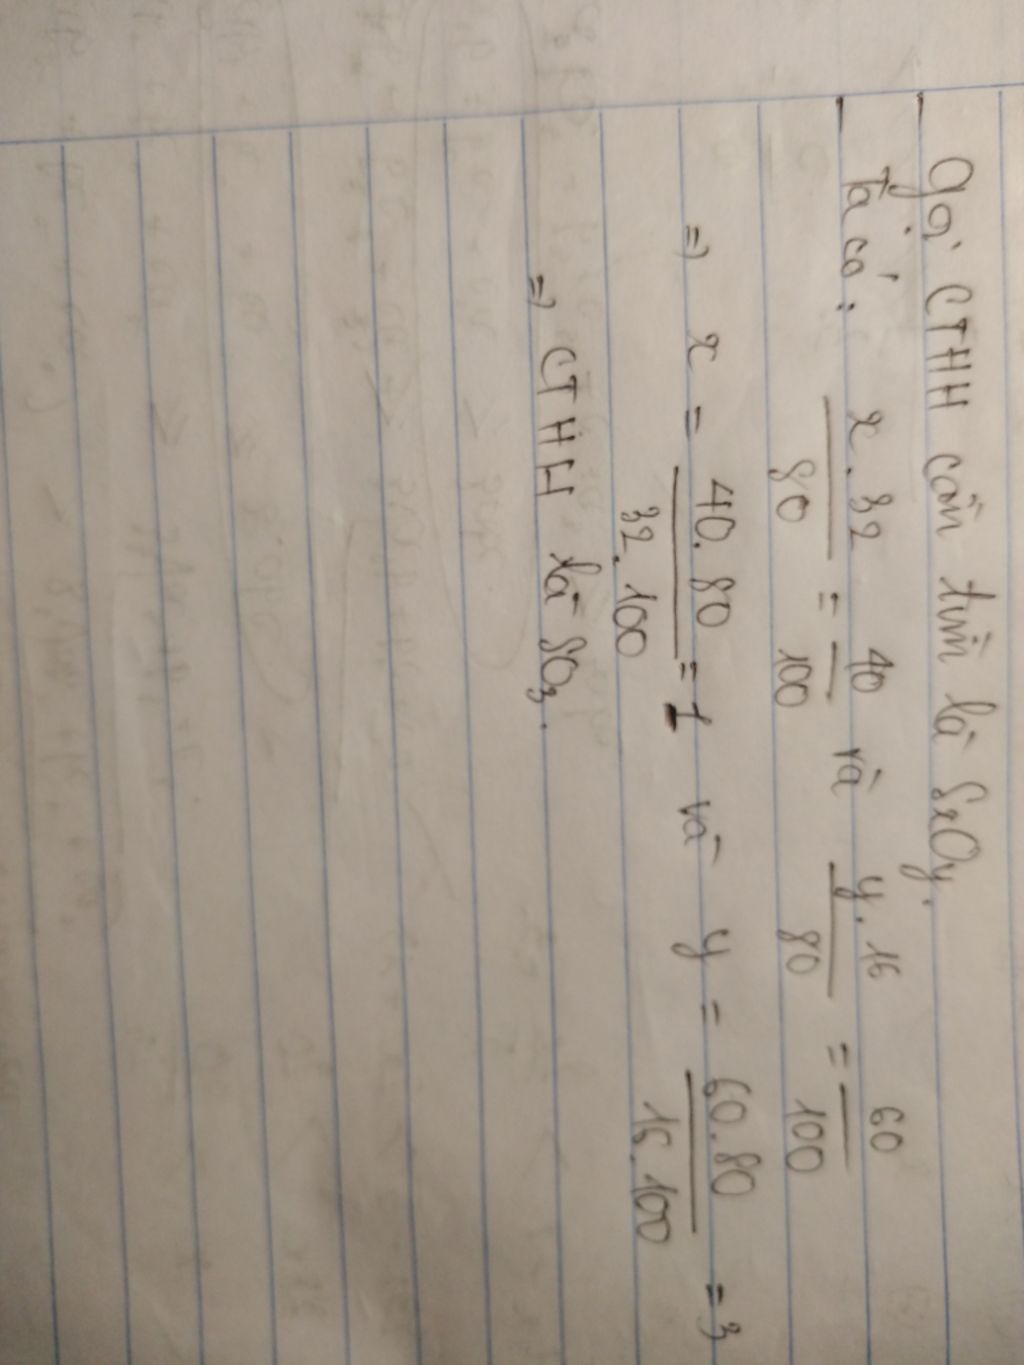 Gọi CTHH cần tìm là SxOy.
Ta có: x.32/80 = 40/100 và y.16/80 = 60/100
=> x = 40.80/32.100 = 1 và y = 60.80/16.100 = 3
=> CTHH là SO3.